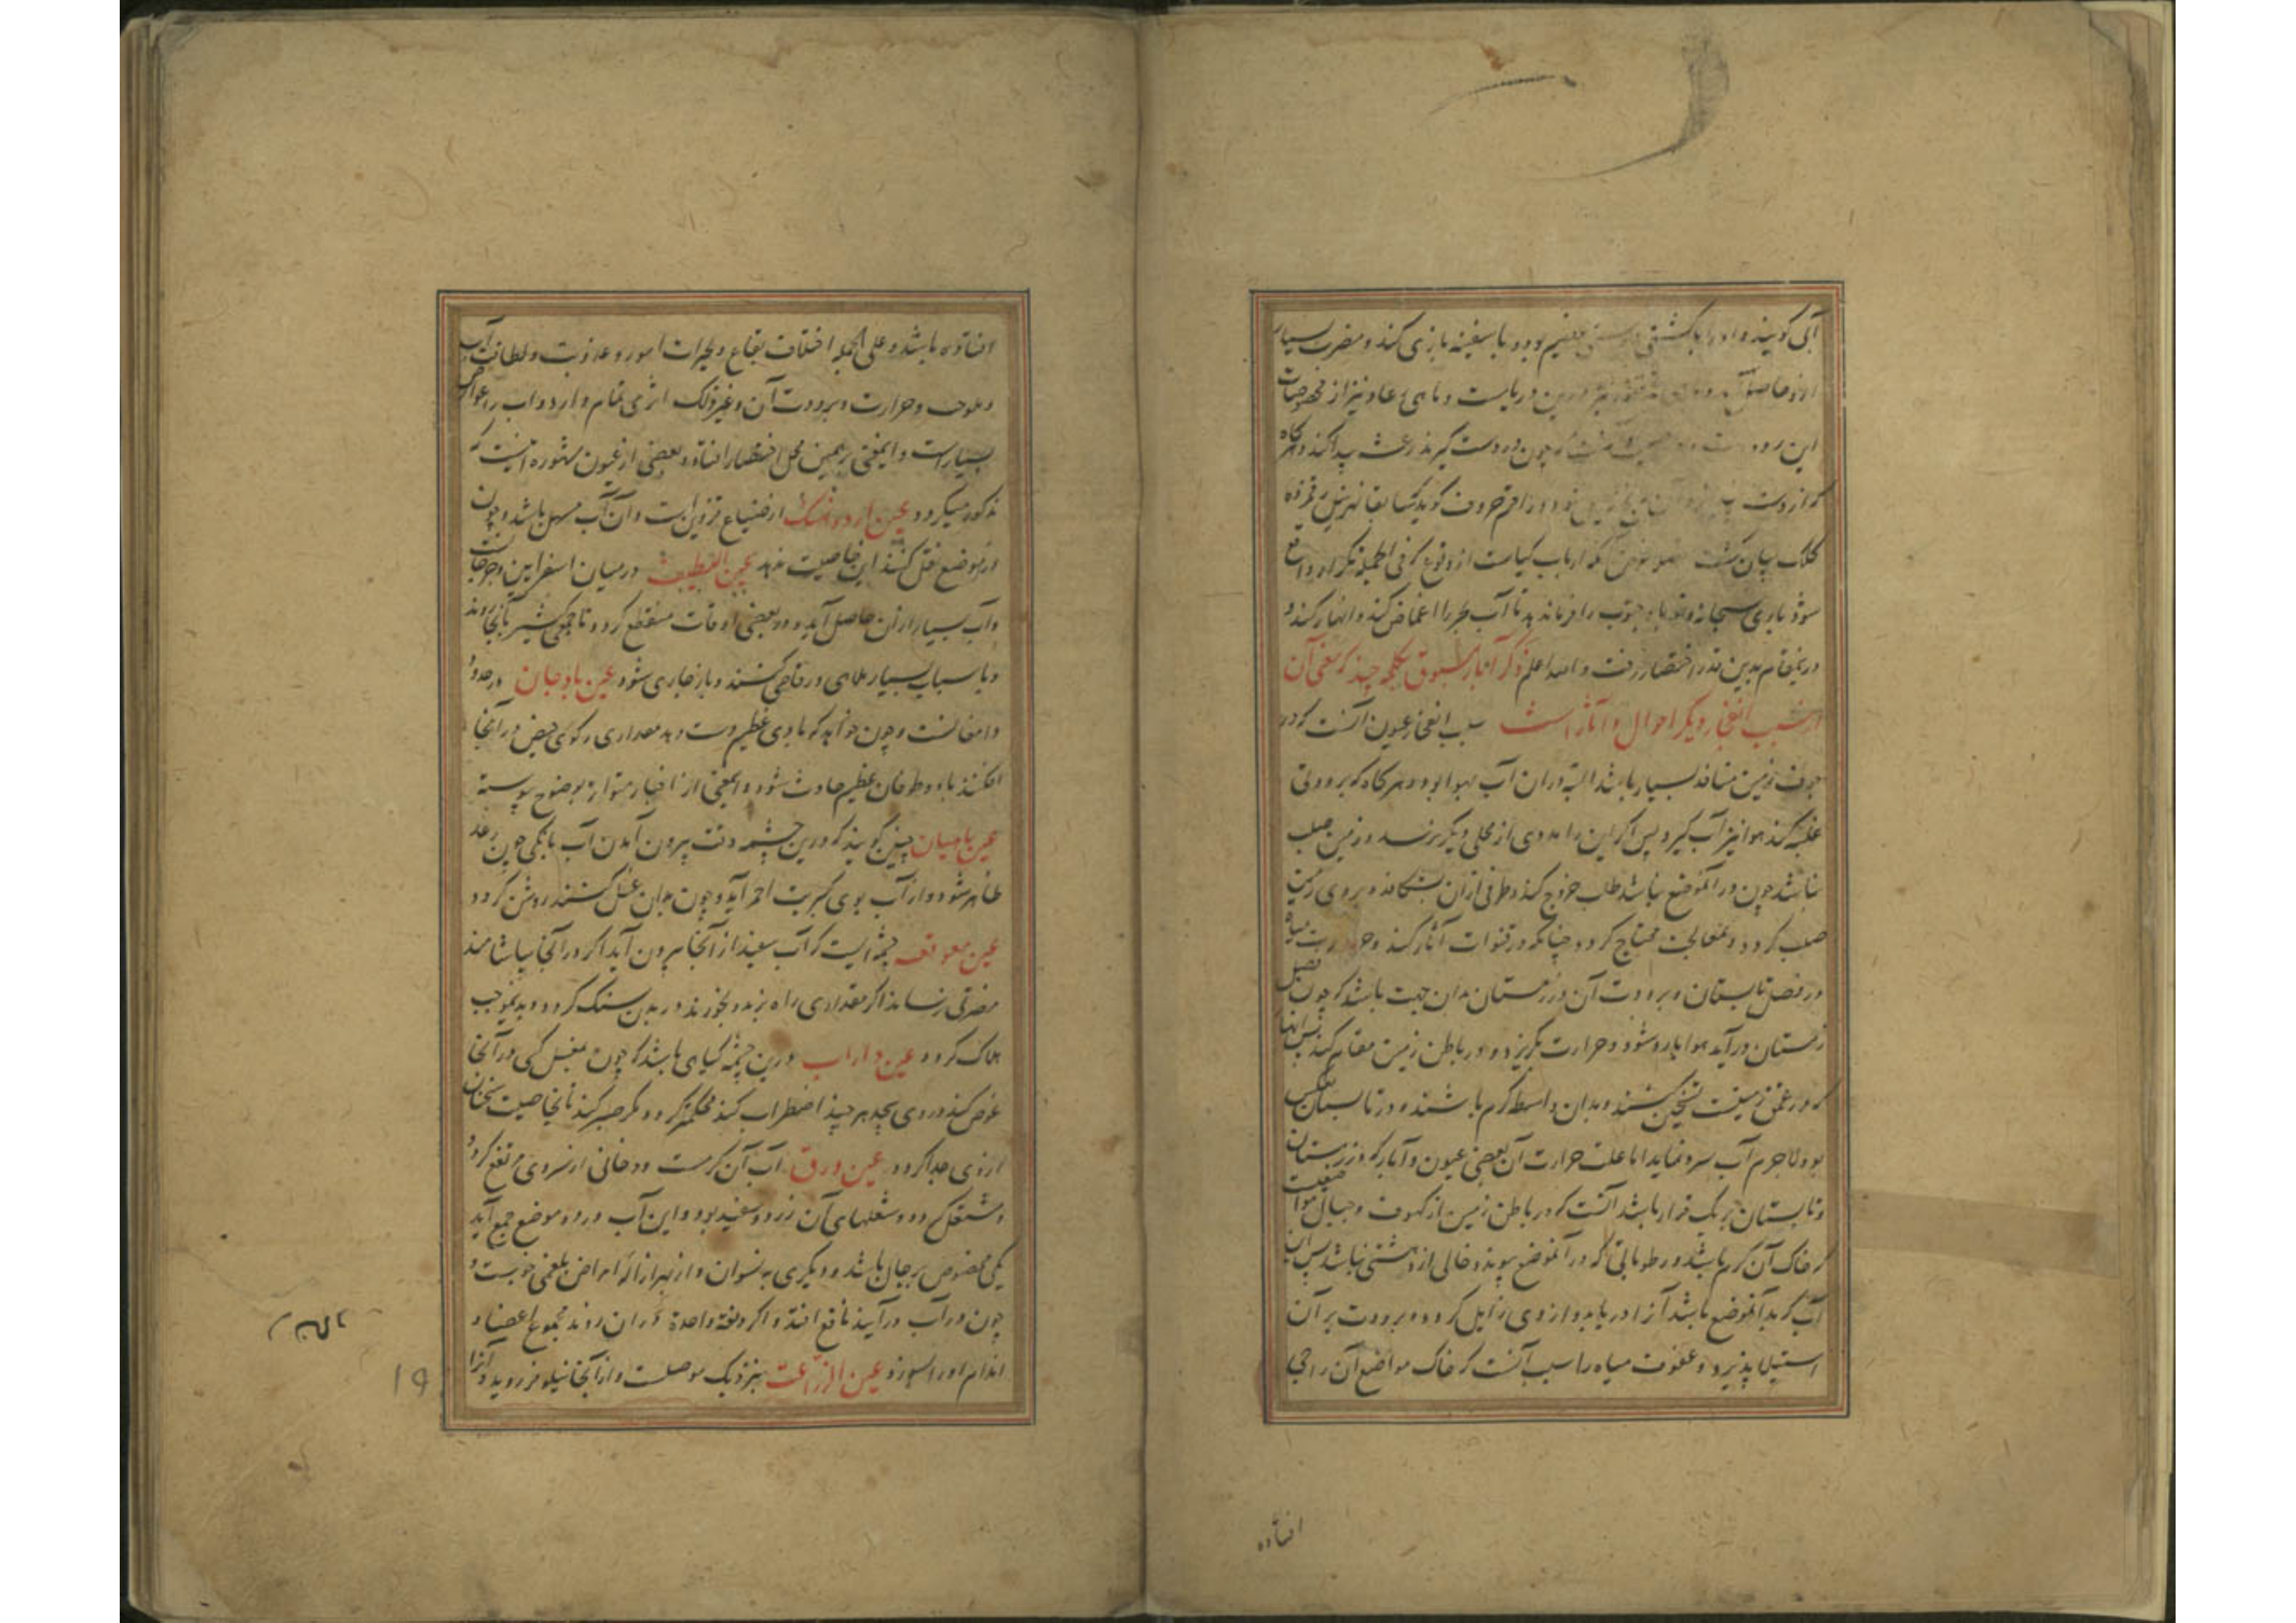 آبی کویند و او را با کشتی عظیم بود با سفینه بازی کند و مضرت بسیار
ازو حاصل آید درین دریاست و ماهی رعاد نیز از مخصوصات
این رود است چون در دست کیرند رعشه پیدا کند و هرکاه
که از دست
کلک بیان کشت ارباب کیاست از وقوع فی الجمله تکرار واقع
شود باری سبحانه و تعالی باد جنوب را فرماید تا آب بحر را اغماض کند و انهار کند و
درین مقام بدین قدر اختصار رفت و الله اعلم ذکر آبار مسبوق بکلمه چند که معنی آن
از سبب انفجار و دیکر احوال و آثار است سبب انفجار عیون آنست که در
جوف زمین منافذ بسیار باشد البته در آن آب یا هوا بود و هرکاه که برودتی
غلبه کند هوا نیز آب کیرد پس اکر این را مددی از محلی دیکر برسد و زمین صلب
نباشد چون در آن موضع نباشد طلب خروج کند و طرفی از آن بشکافد و بر روی زمین
صلب کردد و بمعالجت محتاج کردد چنانکه در قنوات آثار کنند و حرارت میاه
در فصل تابستان و برودت آن در زمستان بدان جهت باشد که چون فصل
زمستان درآید هوا بارد شود و حرارت بکریزد و در باطن زمین مقام کند پس آبها
که در عمق زمینست تسخین کنند و بدان واسطه کرم باشند و در تابستان بعکس
بود لاجرم آب سرد نماید اما علت حرارت آن بعضی عیون و آبار که در زمستان
و تابستان بر یک قرار باشد آنست که در باطن زمین از کهوف و جبال مواضعیست
که خاک آن کرم باشد و رطوباتی که در آن موضع بود و خالی از دهنیتی نباشد پس این
آب که بدان موضع باشد آنرا دریابد و از وی زایل کردد و برودت بر آن
استیلا پذیرد و عفونت میاه را سبب آنست که خاک مواضع آن راجی
افتاده
افتاده باشد و علی الجمله اختلاف بقاع و تغیرات امور و عذوبت و لطافت آب
و ملوحت و حرارت و برودت آن و غیر ذلک اثری تمام دارد و آب را خواص
بسیار است و ایمعنی بر همین محل اختصار افتاد و بعضی از عیون مشهوره اینست که
مذکور میکردد عین اردونسک از ضیاع قزوین است و آن آب مسهل باشد و چون
از موضع نقل کنند این خاصیت ندهد عین القطیف در میان اسفراین و جرجانست
و آب بسیار از آن حاصل آید و در بعضی اوقات منقطع کردد تا جمعی کثیر بآنجا روند
و با اسباب بسیار ملاهی و رقاصی کنند و باز جاری شود عین بادجان در حدود
دامغانست و چون خواهند که بادی عظیم دست دهد مقداری رکوی حیض در آنجا
افکنند باد و طوفان عظیم حادث شود و ایمعنی از اخبار متواتر بوضوح پیوسته
عین بامیان چنین کویند که درین چشمه وقت بیرون آمدن آب بانکی چون رعد
ظاهر شود و از آب بوی کبریت احمر آید و چون بدان غسل کنند روشن کردد
عین معوقف چشمه ایست که آب سفید از آنجا بیرون آید اکر در آنجا بیاشامند
مضرتی نرساند اکر مقداری راه برند و بخورند در بدن سنک کردد و بدین موجب
هلاک کردد عین داراب درین چشمه کیاهی باشد که چون بغسل کسی در آنجا
غوص کند در وی پیچد هر چند اضطراب کند محکمتر کردد و مکر صبر کند تا بخاصیت سخنان
از وی جدا کردد عین ورق آب آن کرمست و دخانی از سر وی مرتفع کردد
و مشتعل کردد و شعلهای آن زرد و سفید بود و این آب در دو موضع جمع آید
یکی مخصوص برجال باشد و دیکری به نسوان و از بهر ازاله امراض بلغمی خوبست و
چون در آب درآیند نافع افتد و اکر دفعه واحدة در آن روند مجموع اعضا و
اندام او را بسوزد عین الزراعت بنزدیک موصلست و از آنجا نیلوفر روید و آنرا
19